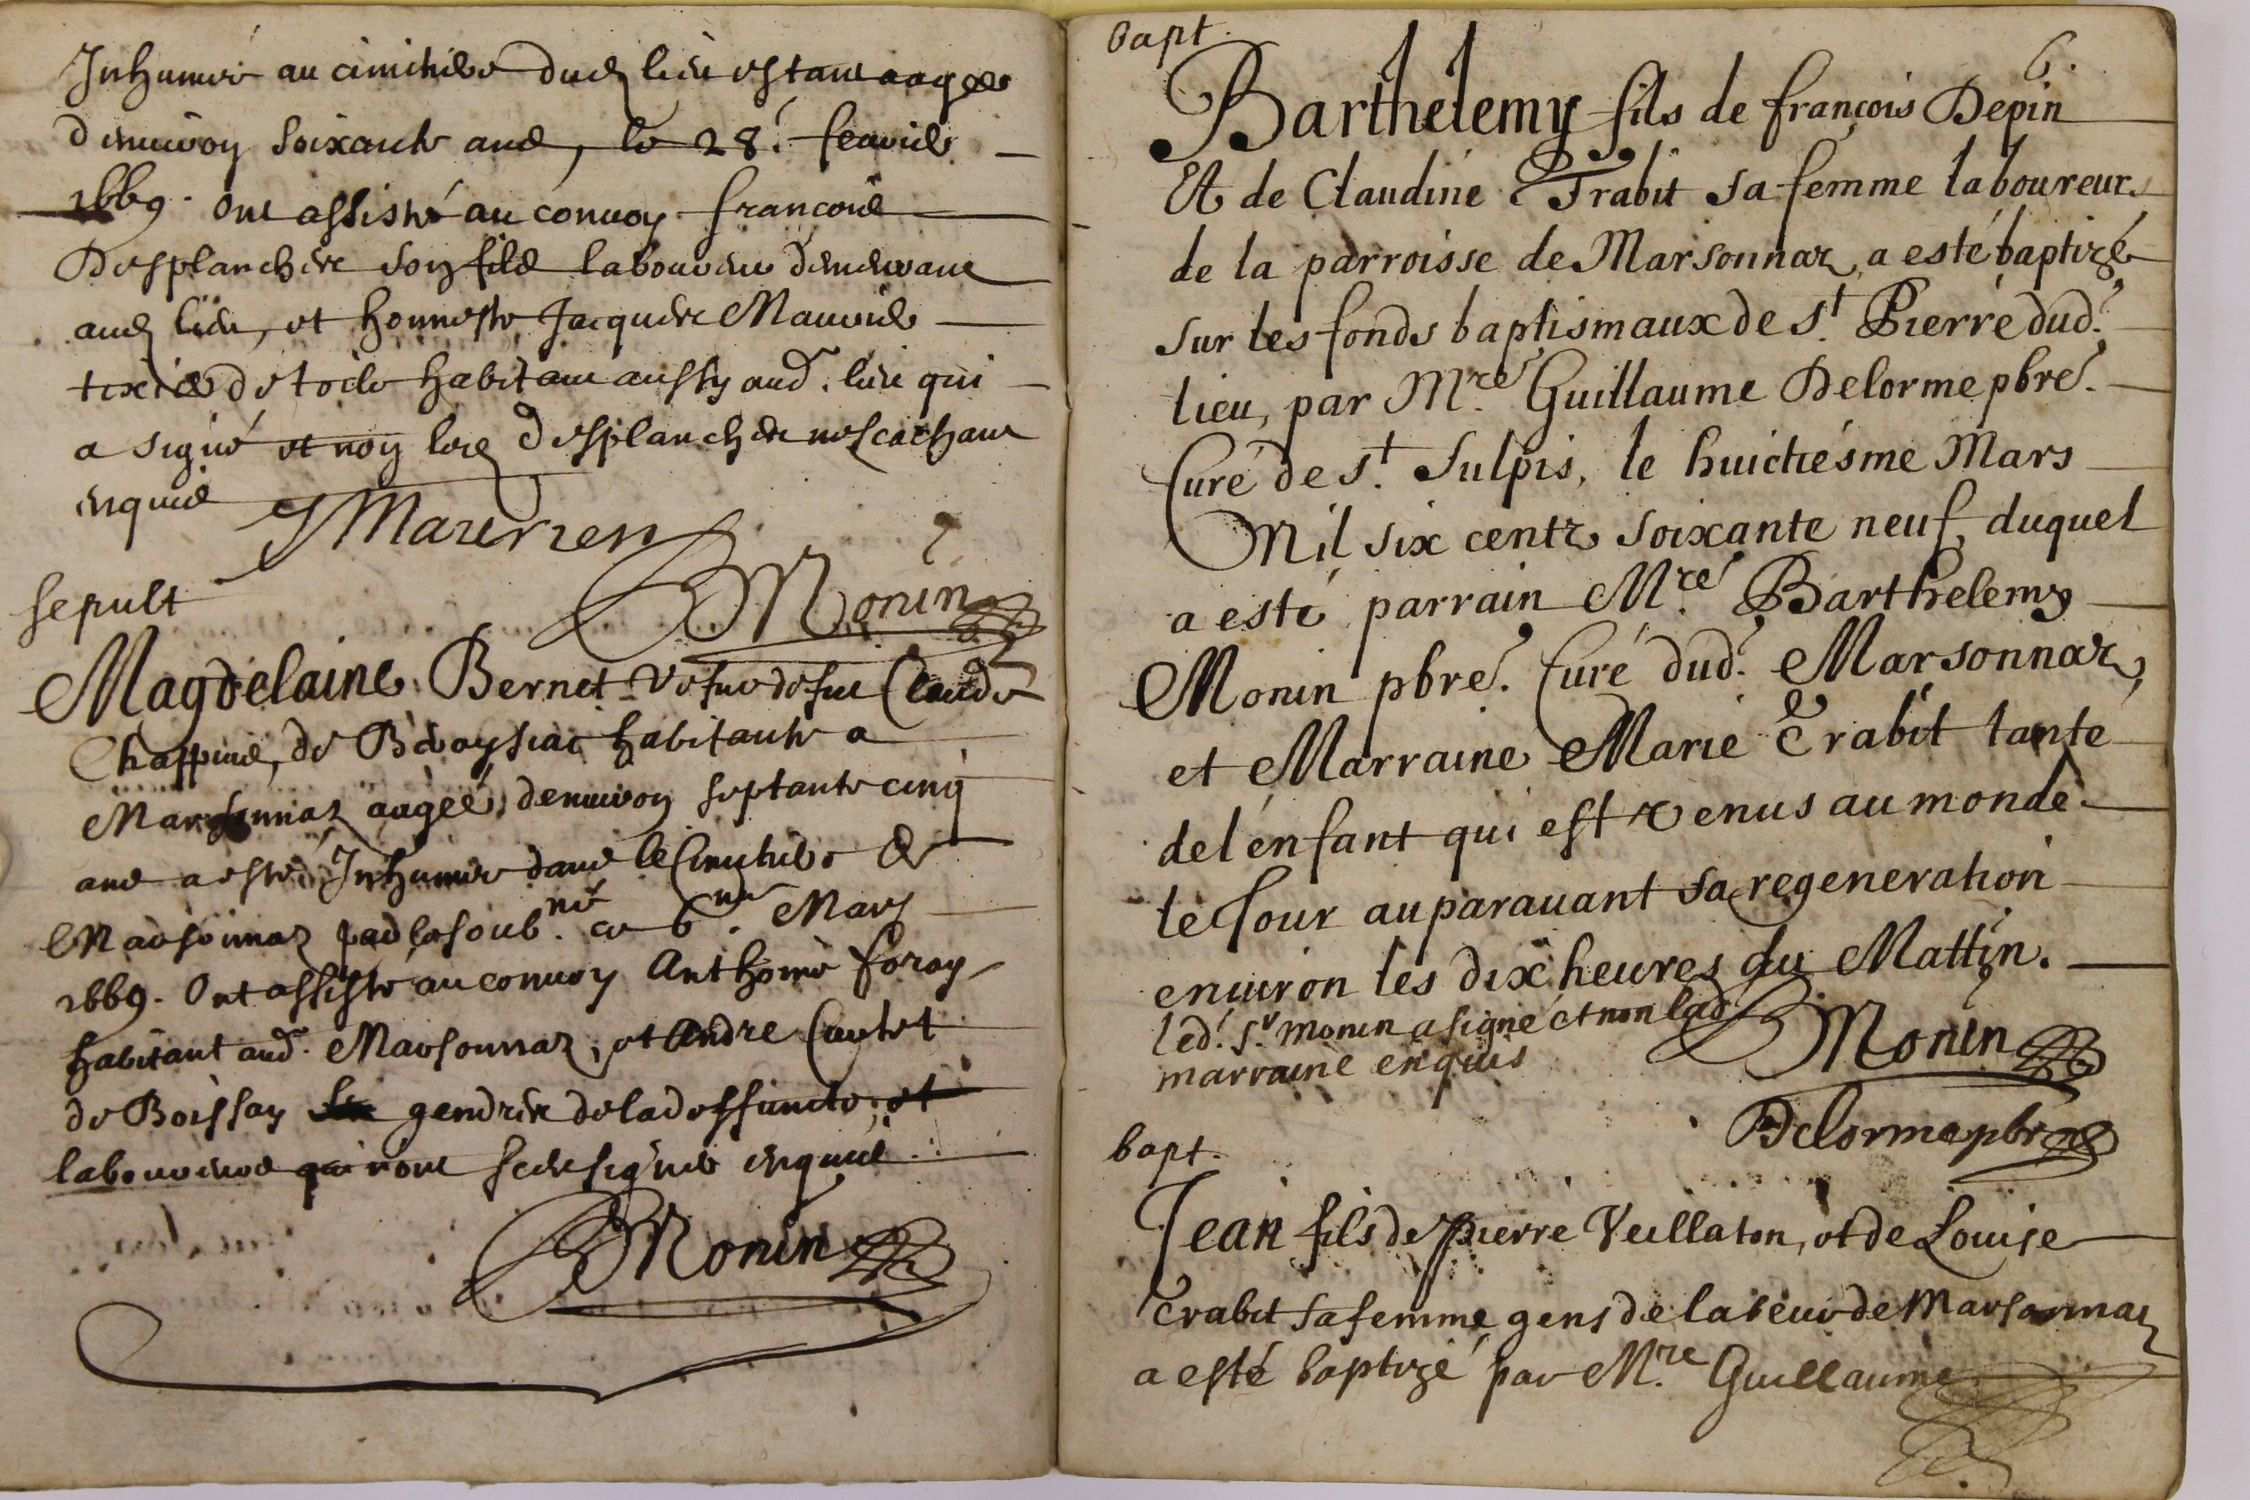 Inhumé au cimitiere dud lieu estant aagée
d'enuiron soixante ans, le 28.e feurier
1669. Ont assisté au conuoy francois
Desplanches son fils laboureur demeurant
aud lieu, et honneste Jacques Maurier
tixier de toile habitant aussy aud. lieu qui
a signé et non led Desplanches ne scachant
enquis
J Maurier
Monin
sepult
Magdelaine Bernet vefue de feu Claude
Chappuis, de habitante a
Marsonnaz aagée denuiron septante cinq
ans a esté Inhumée dans le Cimitiere de
Marsonnaz par le soub.né ce 6.me Mars
1669. Ont assisté au conuoy Anthoine foray
habitant aud. Marsonnaz, et Andre Cautet
de Boissay gendres de la deffuncte, et
laboureurs qui n'ont sceu signer enquis.
Monin
bapt.
6.
Barthelemy fils de françois Depin
Et de Claudine Trabit sa femme laboureurs
de la parroisse de Marsonnaz a esté baptizé
sur les fonds baptismaux de St. Pierre dud.
lieu, par Mre. Guillaume Delorme pbre.
Curé de St. Sulpis, le huictiesme Mars
Mil six centz soixante neuf, duquel
a esté parrain Mre. Barthelemy
Monin pbre. Curé dud. Marsonnaz,
et Marraine Marie Trabit tante
de l'enfant qui est venus au monde
le Jour auparauant sa regeneration
enuiron les dix heures du Mattin.
led. Sr. monin a signé et non lad.
marraine enquis
Monin
Delorme pbre
bapt.
Jean fils de pierre Veillaton, et de Louise
Trabit sa femme gens de labeur de Marsonnaz
a esté baptizé par Mre. Guillaume